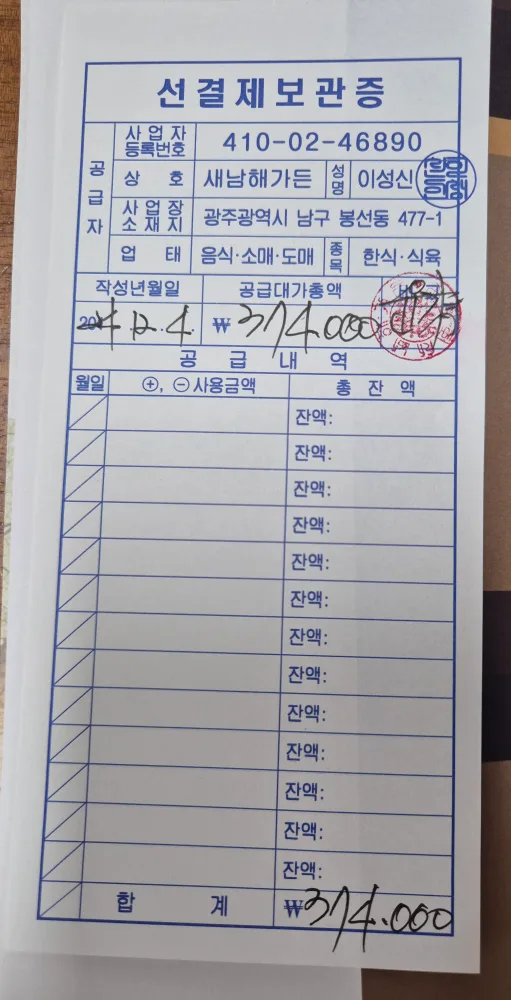 선결제보관증
공급자
사업자등록번호 410-02-46890
상호 새남해가든 성명 이성신
사업장소재지 광주광역시 남구 봉선동 477-1
업태 음식·소매·도매 종목 한식·식육
작성년월일 공급대가총액
2024. 12. 4. ₩ 374.000
공급내역
월일 ⊕, ⊖사용금액 총잔액
잔액:
잔액:
잔액:
잔액:
잔액:
잔액:
잔액:
잔액:
잔액:
잔액:
잔액:
잔액:
잔액:
합계 ₩374.000